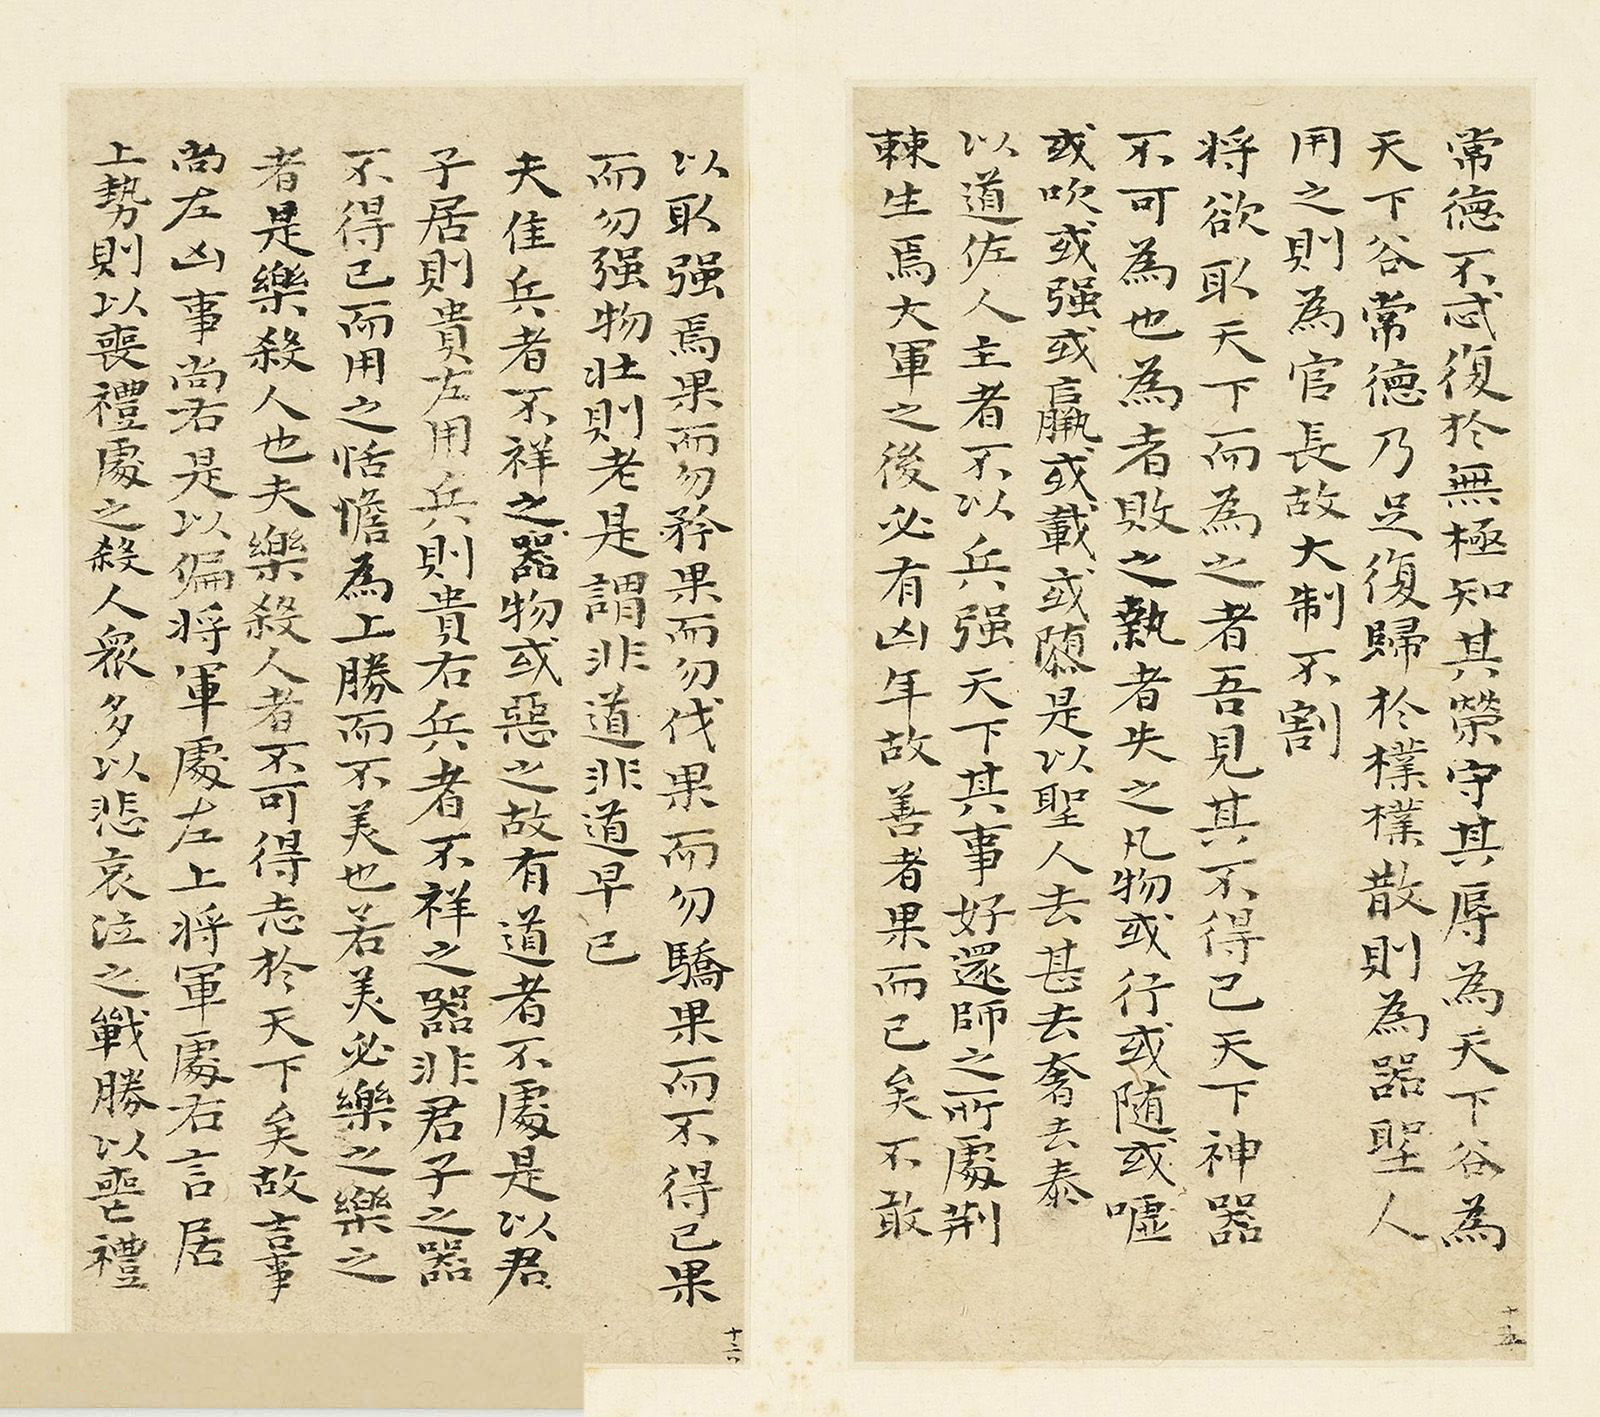 常德不忒復於無極知其榮守其辱為天下谷為
天下谷常德乃足復歸於樸樸散則為器聖人
用之則為官長故大制不割
将欲取天下而為之者吾見其不得已天下神器
不可為也為者敗之執者失之凡物或行或随或嘘
或吹或强或羸或載或隳是以聖人去甚去奢去泰
以道佐人主者不以兵强天下其事好還師之所處荆
棘生焉大軍之後必有凶年故善者果而已矣不敢
十五
以取强焉果而勿矜果而勿伐果而勿驕果而不得已果
而勿强物壯則老是謂非道非道早已
夫佳兵者不祥之器物或惡之故有道者不處是以君
子居則貴左用兵則貴右兵者不祥之器非君子之器
不得已而用之恬憺為上勝而不美也若美必樂之樂之
者是樂殺人也夫樂殺人者不可得志於天下矣故吉事
尚左凶事尚右是以偏将軍處左上将軍處右言居
上勢則以喪禮處之殺人衆多以悲哀泣之戰勝以喪禮
十六